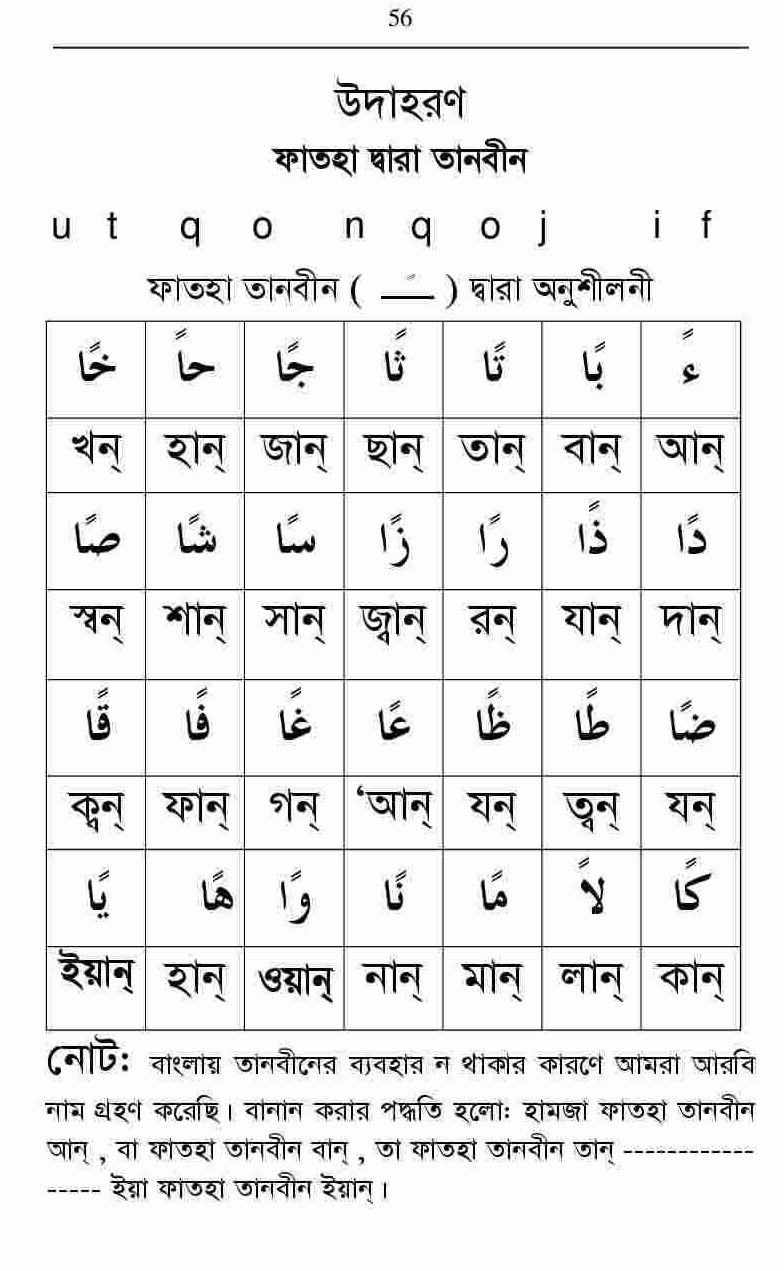 56
উদাহরণ
ফাতহা দ্বারা তানবীন
u t q o n q o j i f
ফাতহা তানবীন ( ـًـ ) দ্বারা অনুশীলনী
ءً بًا تًا ثًا جًا حاً خًا
খন্ হান্ জান্ ছান্ তান্ বান্ আন্
دًا ذًا رًا زًا سًا شًا صًا
স্বন্ শান্ সান্ জ্বান্ রন্ যান্ দান্
ضًا طًا ظًا عًا غًا فًا قًا
ক্বন্ ফান্ গন্ ‘আন্ যন্ ত্বন্ যন্
كًا لاً مًا نًا وًا هًا يًا
ইয়ান্ হান্ ওয়ান্ নান্ মান্ লান্ কান্
নোট: বাংলায় তানবীনের ব্যবহার ন থাকার কারণে আমরা আরবি
নাম গ্রহণ করেছি। বানান করার পদ্ধতি হলো: হামজা ফাতহা তানবীন
আন্ , বা ফাতহা তানবীন বান্ , তা ফাতহা তানবীন তান্ ------------
----- ইয়া ফাতহা তানবীন ইয়ান্।